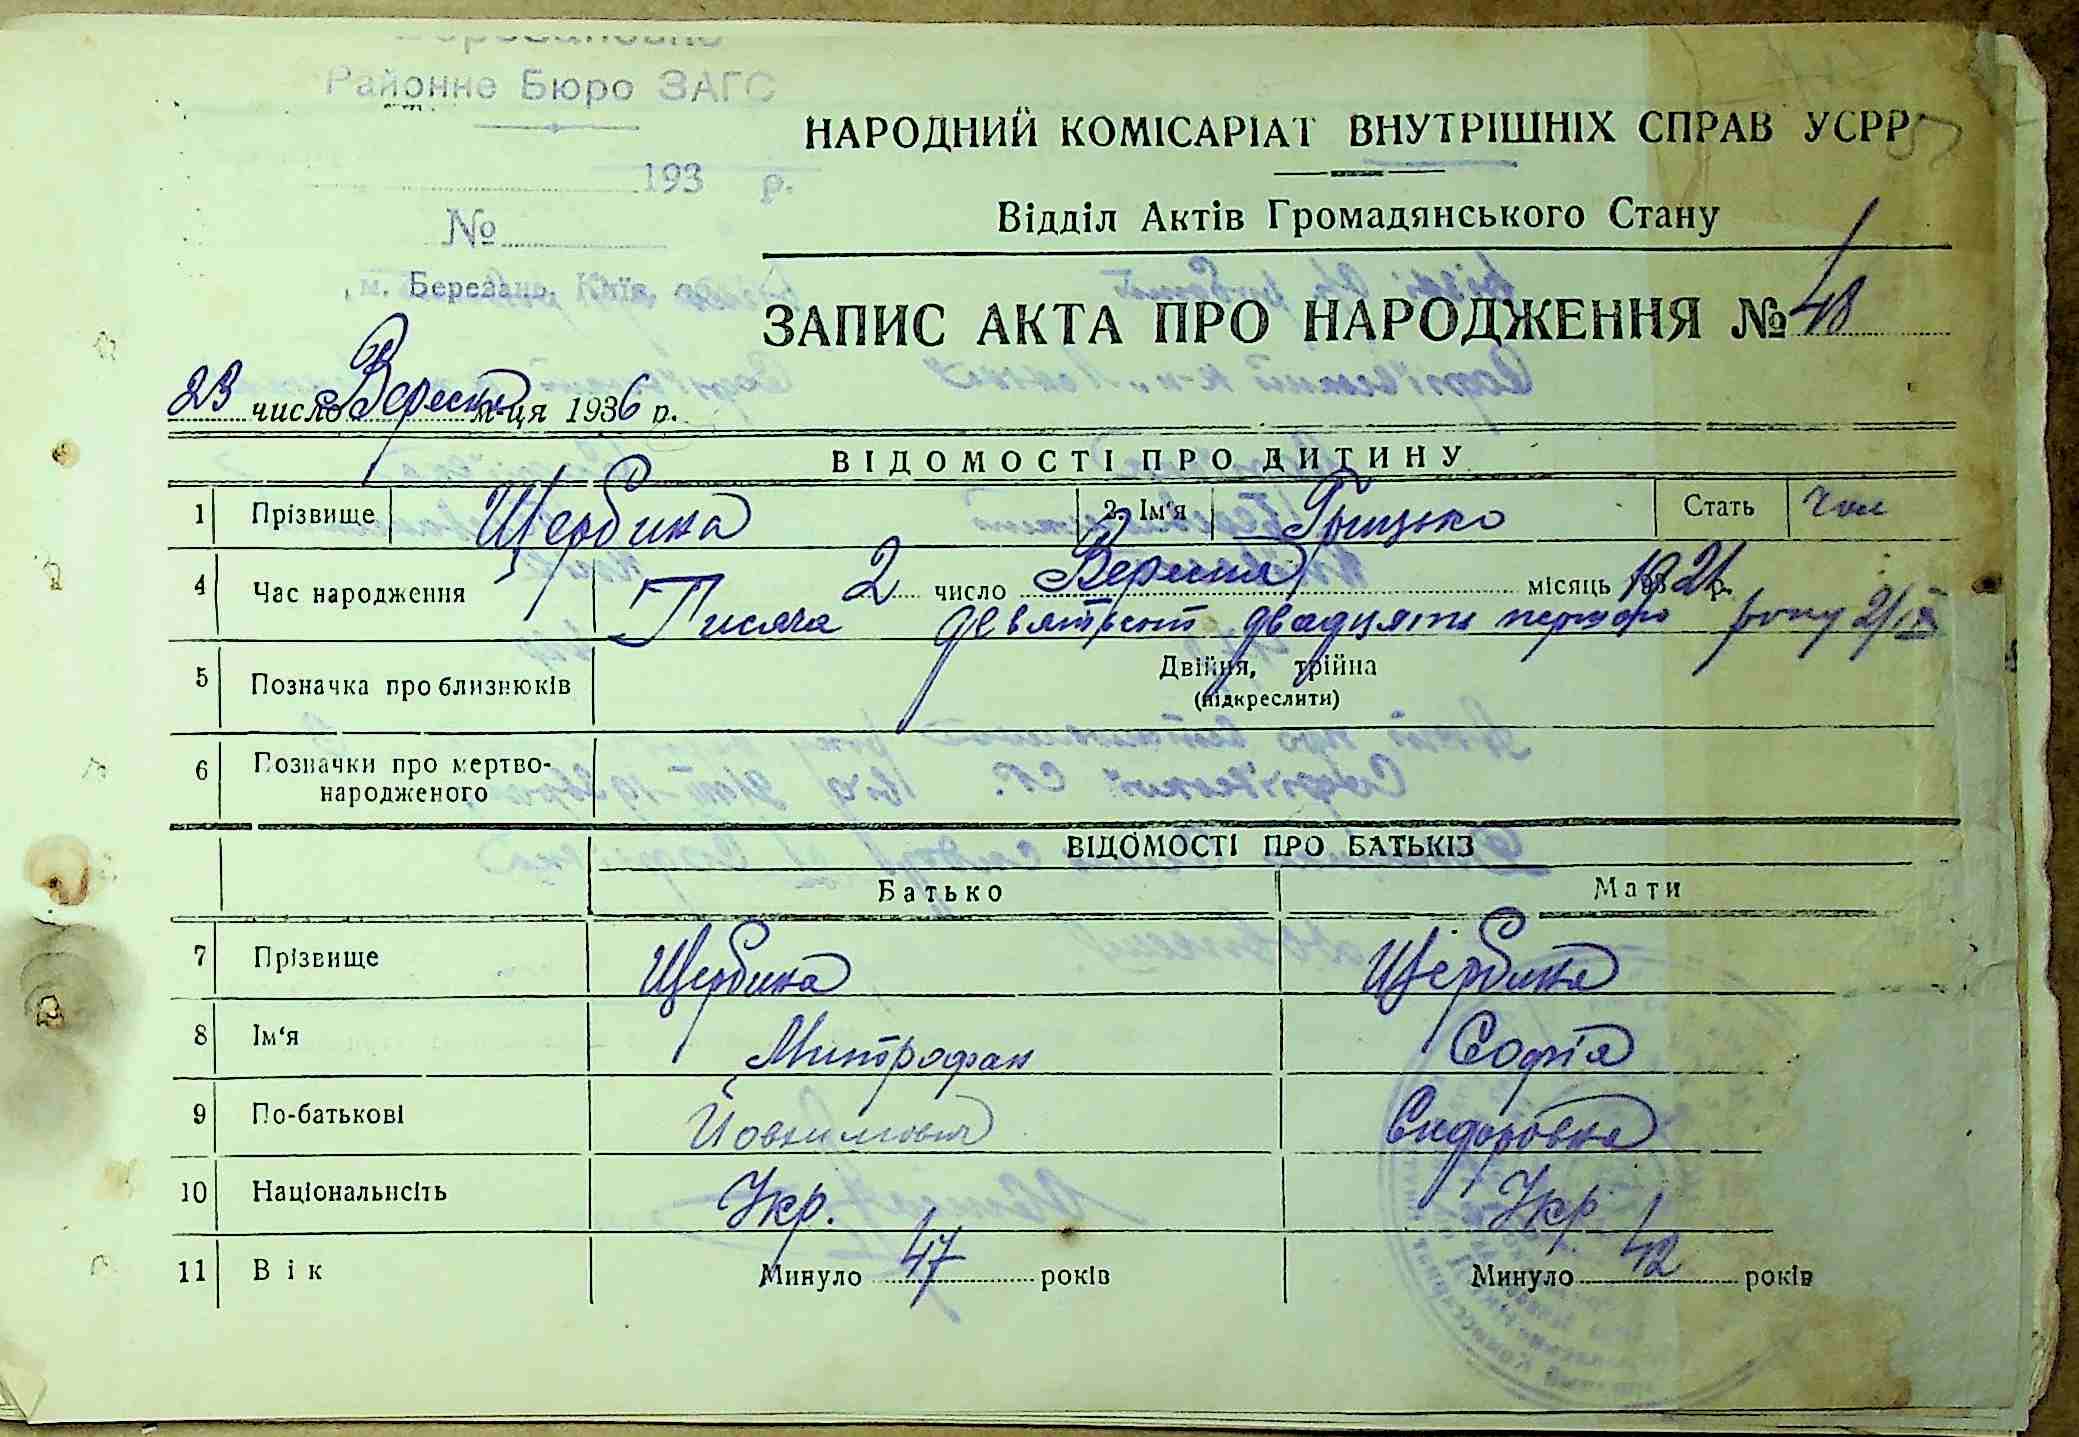 Районне Бюро ЗАГС
НАРОДНИЙ КОМІСАРІАТ ВНУТРІШНІХ СПРАВ УСРР
193 р.
Відділ Актів Громадянського Стану
№
м. Березань, Київ.
ЗАПИС АКТА ПРО НАРОДЖЕННЯ № 48
23 число Вересня м-ця 1936 р.
ВІДОМОСТІ ПРО ДИТИНУ
1 Прізвище Щербина 2. Ім'я Грицько Стать Чол
4 Час народження 2 число Вересня місяць 1921 р.
Тисяча девятсот двадцять першого року 2/ІХ
5 Позначка про близнюків Двійня, трійна
(підкреслити)
6 Позначки про мертво-
народженого
ВІДОМОСТІ ПРО БАТЬКІВ
Батько Мати
7 Прізвище Щербина Щербина
8 Ім'я Митрофан Софія
9 По-батькові Йовхимович Сидоровна
10 Національність Укр. Укр.
11 Вік Минуло 47 років Минуло 42 років